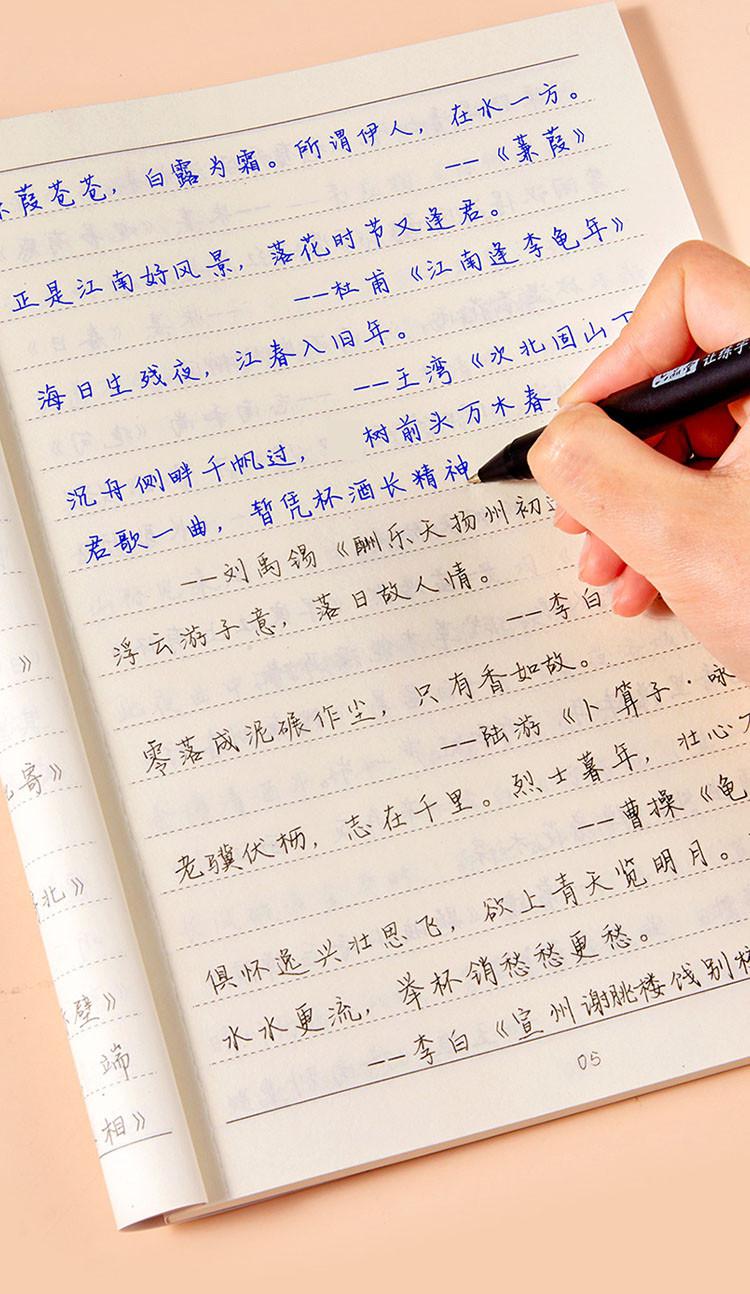 葭苍苍，白露为霜。所谓伊人，在水一方。
--《蒹葭》
正是江南好风景，落花时节又逢君。
--杜甫《江南逢李龟年》
海日生残夜，江春入旧年。
--王湾《次北固山下
沉舟侧畔千帆过， 树前头万木春
君歌一曲，暂凭杯酒长精神
--刘禹锡《酬乐天扬州初
浮云游子意，落日故人情。
--李白
零落成泥碾作尘，只有香如故。
--陆游《卜算子·咏
老骥伏枥，志在千里。烈士暮年，壮心不
--曹操《龟
俱怀逸兴壮思飞，欲上青天览明月。
水水更流，举杯销愁愁更愁。
--李白《宣州谢朓楼饯别校
05
》
寄》
北》
《壁》
端
相》
让练字